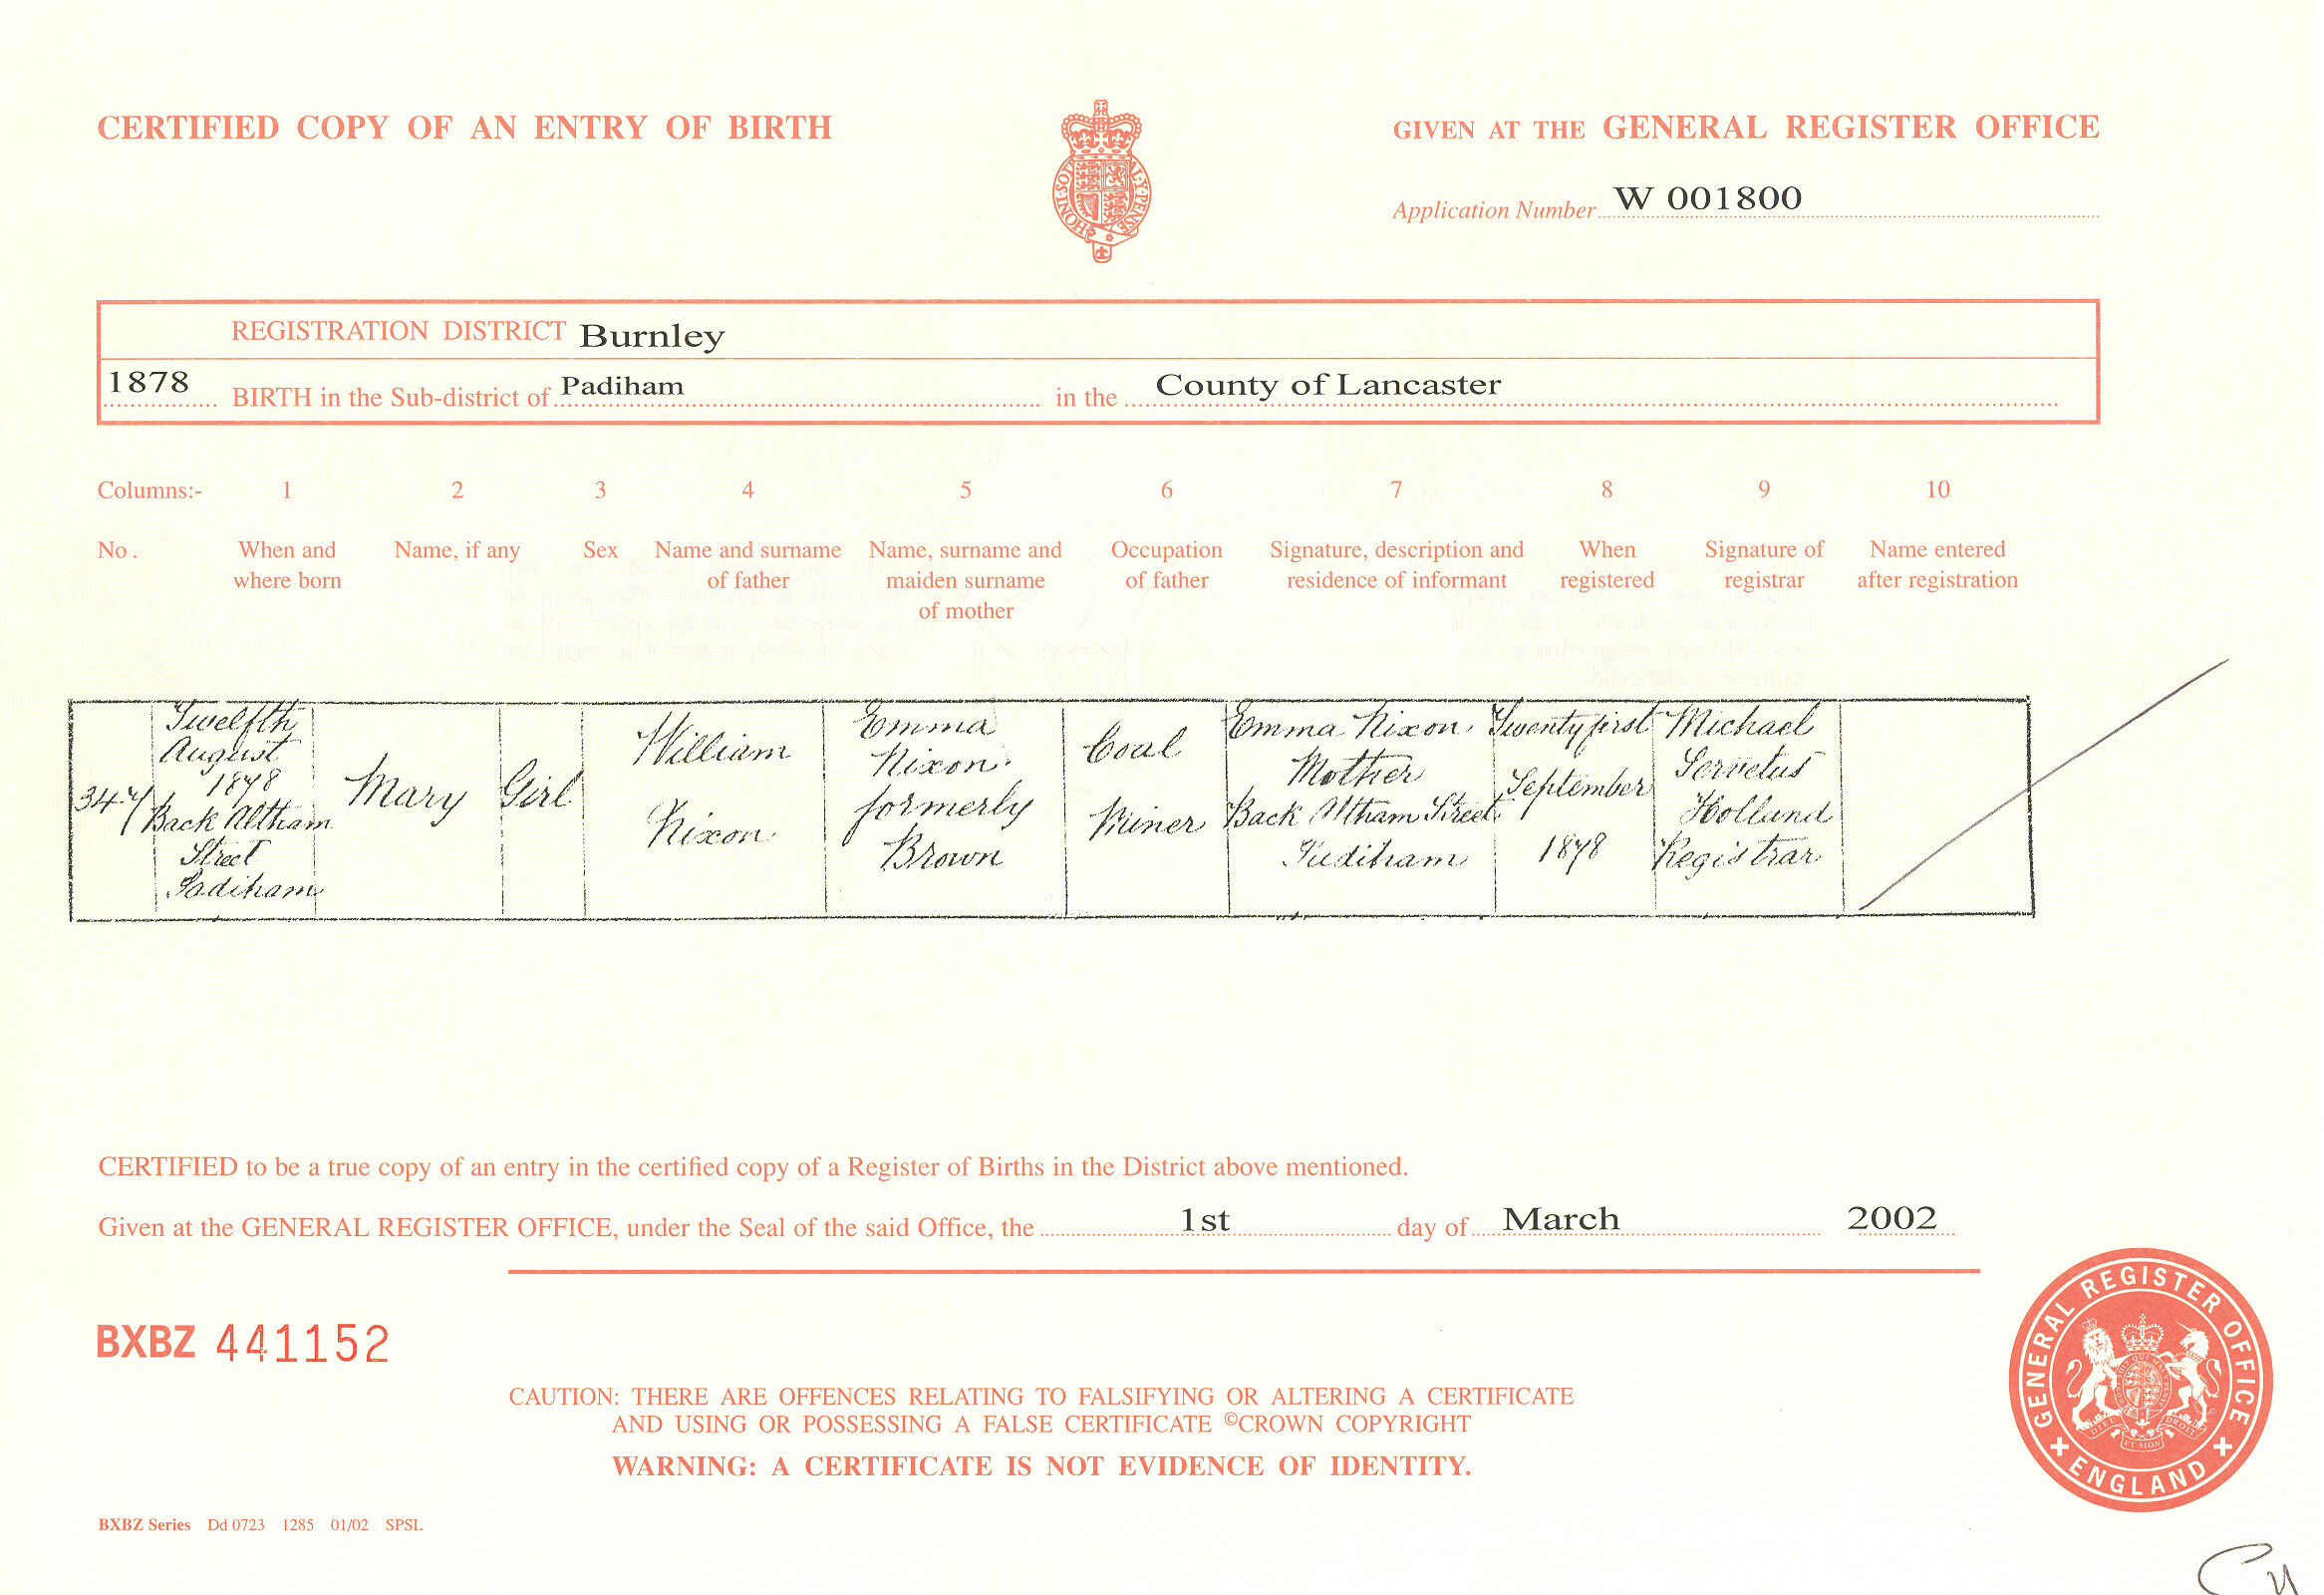 CERTIFIED COPY OF AN ENTRY OF BIRTH
GIVEN AT THE GENERAL REGISTER OFFICE
Application Number W 001800
REGISTRATION DISTRICT Burnley
1878 BIRTH in the Sub-district of Padiham in the County of Lancaster
Columns:- 1 2 3 4 5 6 7 8 9 10
No. When and where born
Name, if any
Sex
Name and surname
of father
Name, surname and
maiden surname
of mother
Occupation
of father
Signature, description and
residence of informant
When
registered
Signature of
registrar
Name entered
after registration
347
Twelfth
August
1878
Back Altham
Street
Padiham
Mary
Girl
William
Nixon
Emma
Nixon
formerly
Brown
Coal
Miner
Emma Nixon
Mother
Back Altham Street
Padiham
Twenty first
September
1878
Michael
Servetus
Holland
Registrar
CERTIFIED to be a true copy of an entry in the certified copy of a Register of Births in the District above mentioned.
Given at the GENERAL REGISTER OFFICE, under the Seal of the said Office, the 1st day of March 2002
BXBZ 441152
CAUTION: THERE ARE OFFENCES RELATING TO FALSIFYING OR ALTERING A CERTIFICATE
AND USING OR POSSESSING A FALSE CERTIFICATE ©CROWN COPYRIGHT
WARNING: A CERTIFICATE IS NOT EVIDENCE OF IDENTITY.
GENERAL REGISTER OFFICE
ENGLAND
BXBZ Series Dd 0723 1285 01/02 SPSL